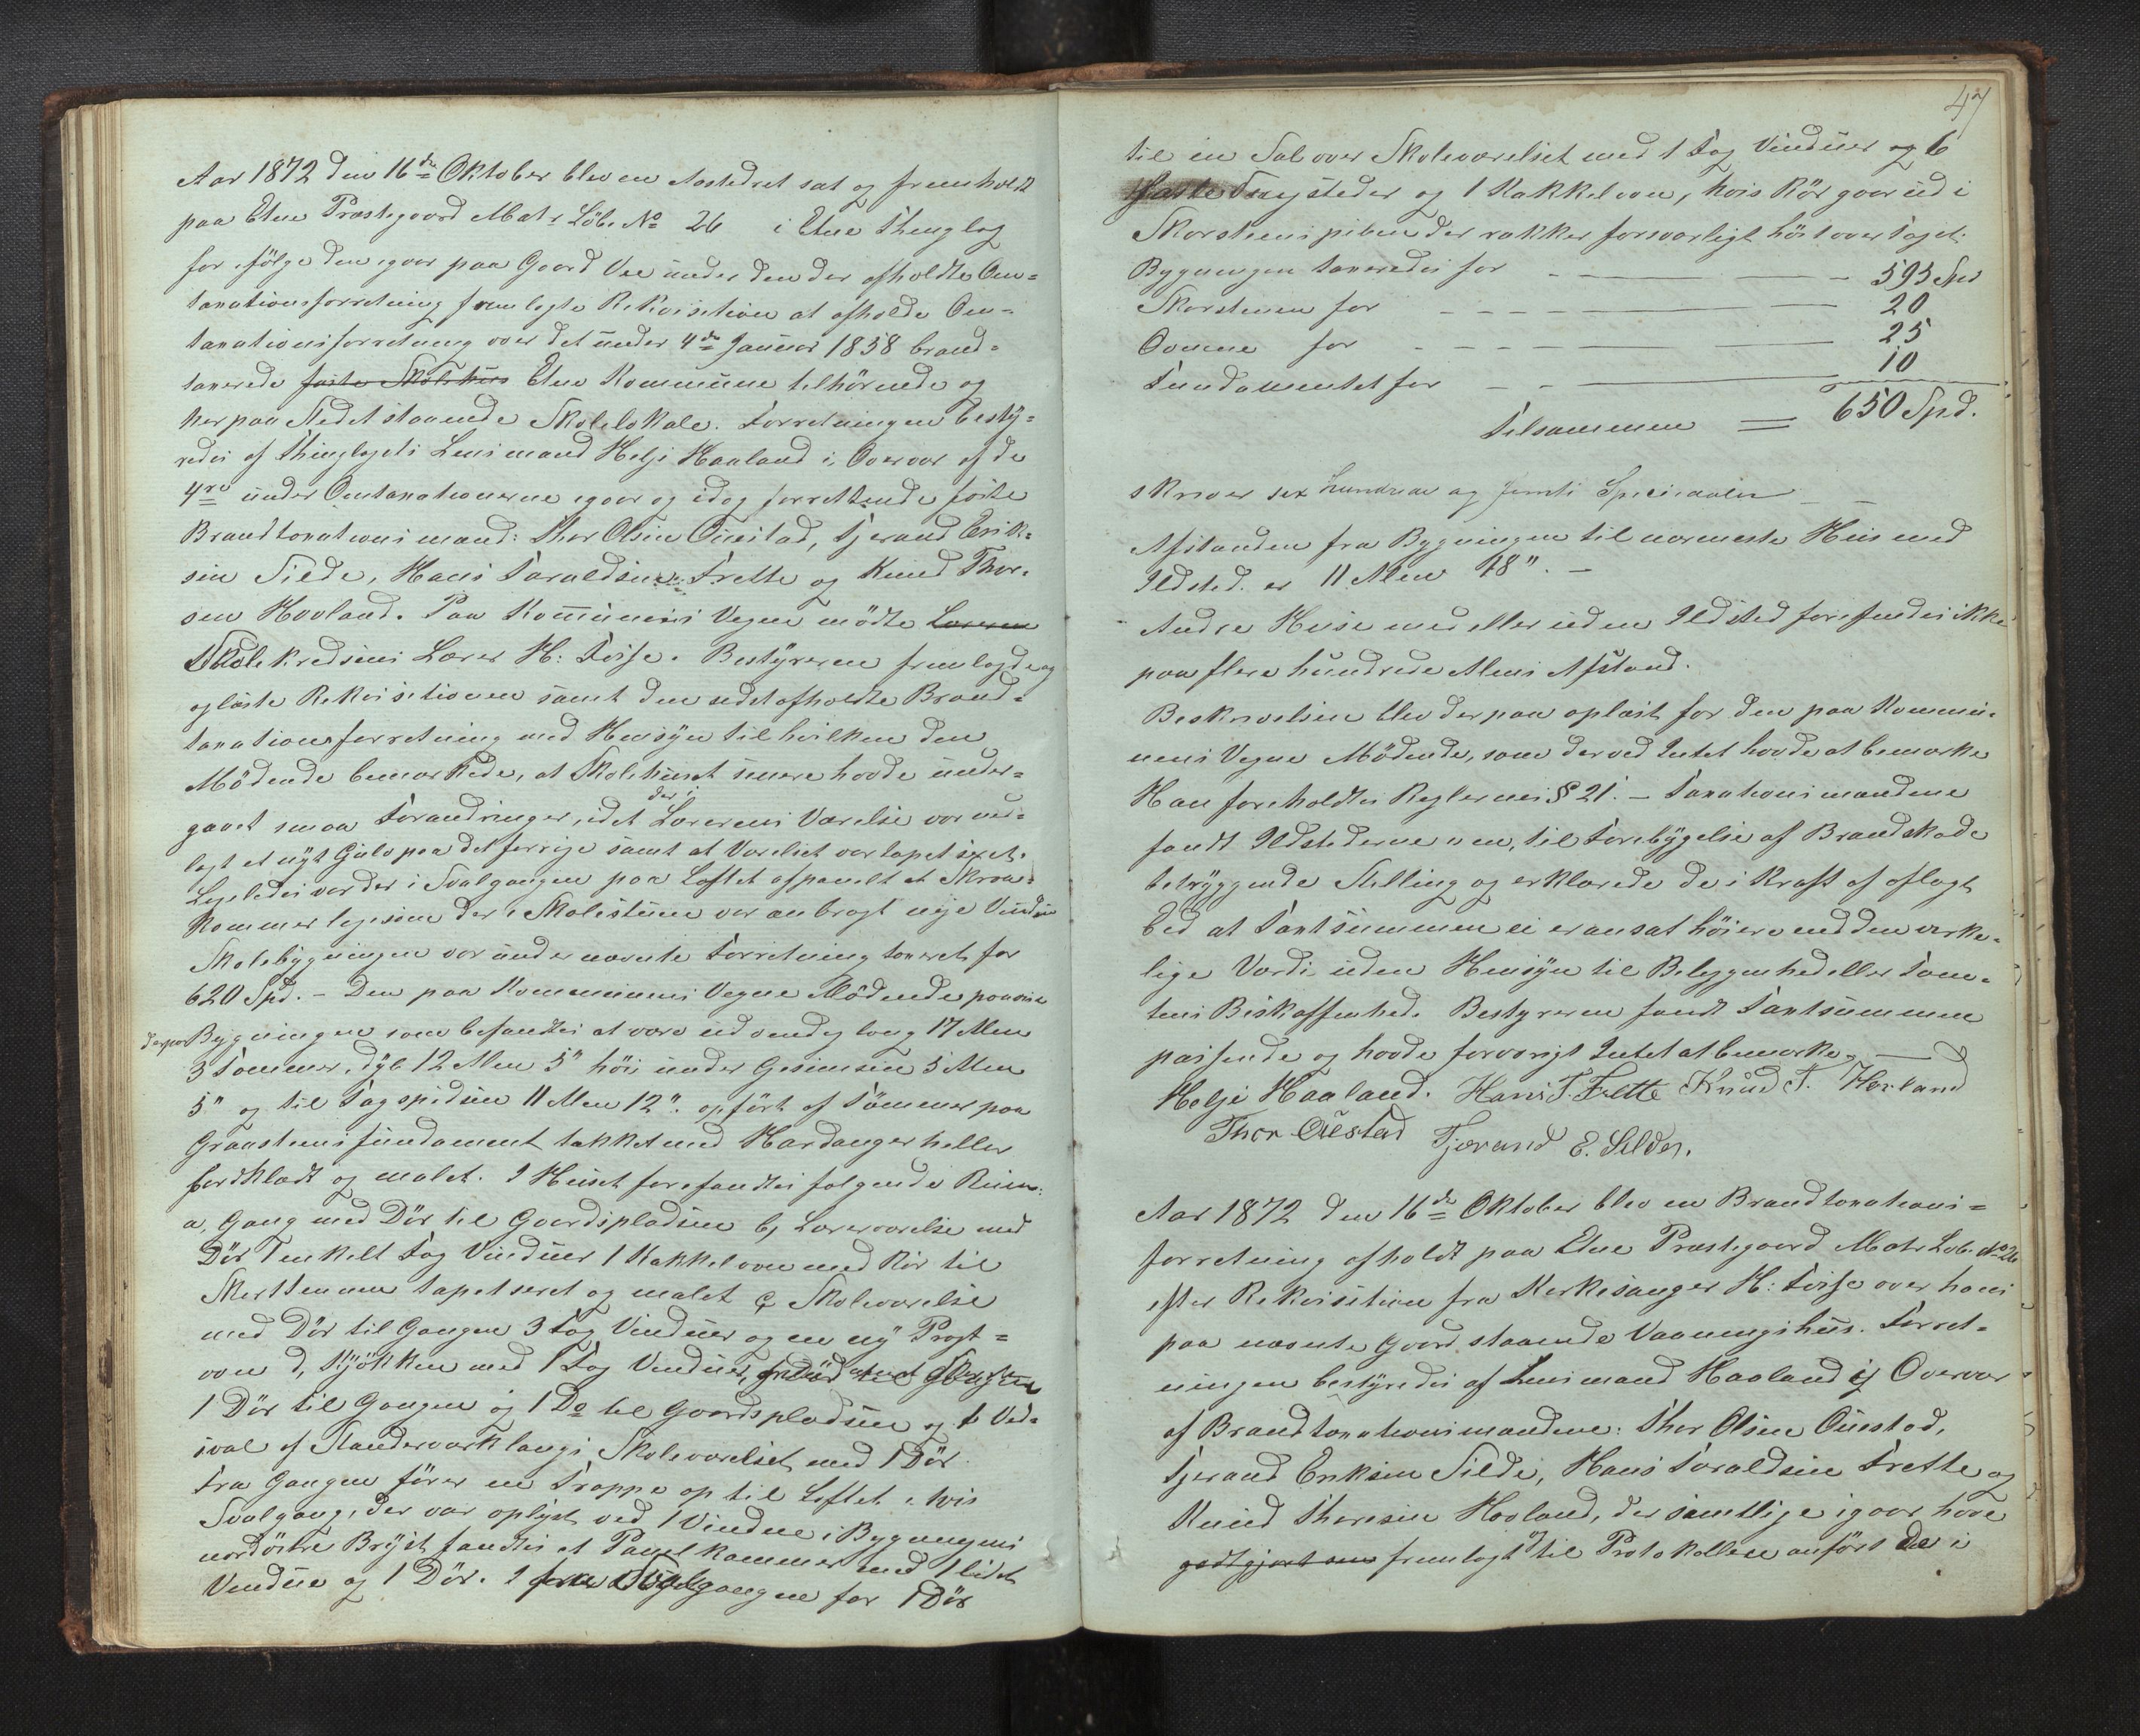 Aar 1872 den 16de Oktober blev en Aastedret sat og fremholdt
paa Etne Præstegaard Matr Löb. No 26 i Etne Thinglag
for ifölge den igaar paa Gaard Vee under den der afholdte Om-
taxationsforretning fremlagte Rekvisition at afholde Om-
taxationsforretning over det under 4de Januar 1858 brand-
taxerede Etne Kommune tilhörende og
her paa Stedet staaende Skolelokale. Forretningen besty-
redes af Thinglagets Lensmand Helje Haaland i Overvær af de
4re under Omtaxationerne igaar og idag forrettende faste
Brandtaxationsmænd: Thor Olsen Öuestad, Tjerand Erik-
sen Silde, Hans Taraldsen Frette og Knud Thor-
sen Hovland. Paa Kommunens Vegne mödte Læreren
Skolekredsens Lærer H: Tviſe. Bestyreren fremlagde og
oplæste Rekvisitionen samt den sidst afholdte Brand-
taxationsforretning med Hensyn til hvilken den
Mödende bemærkede, at Skolehuset senere havde under-
gaaet smaa Forandringer, idet der i Lærerens Værelse var ned-
lagt et nyt Gulv paa det forrige samt at Værelset var tapetseret.
Ligeledes var der i Svalgangen paa Loftet afpanelt et Skraa-
kammer ligesom der i Skolestuen var anbragt nye Vinduer
Skolebygningen var under nævnte Forretning taxeret for
620 Spd. - Den paa Kommunens Vegne Mödende paaviste
derpaa Bygningen som befandtes at være udvendig lang 17 Alen
3 Tommer, dyb 12 Alen 5" höi under Gesimsen 5 Alen
5" og til Tagspidsen 11 Alen 12". opfört af Tömmer paa
Graastens fundament takket med Hardangerheller
bordklædt og malet. I Huset forefandtes fölgende Rum:
a, Gang med Dör til Gaardspladsen b, Lærerværelse med
Dör 1 enkelt Fag Vinduer 1 Kakkelovn med Rör til
Skorstenen tapetseret og malet c, Skoleværelse
med Dör til Gangen 3 Fag Vinduer og en ny Pragt-
ovn d, Kjökken med 1 Fag Vinduer,
1 Dör til Gangen og 1 Do til Gaardspladsen og 1 Ved-
sval af Standerværk langs Skoleværelset med 1 Dör.
Fra Gangen förer en Trappe op til Loftet i hvis
Svalgang, der var oplyst ved 1 Vindue i Bygningens
nordöstre Bryst fandtes et Panelkammer med 1 lidet
Vindue og 1 Dör. I Svalgangen for 1 Dör
47
til en Sal over Skoleværelset med 1 Fag Vinduer og 6
faste Sengsteder og 1 Kakkelovn, hvis Rör gaar ud i
Skorstenspiben der rækker forsvarligt höit over Taget.
Bygningen taxeredes for - - 595 Spd
Skorstenen for - - - - 20
Ovnene for - - - - 25
Fundamentet for - - 10
Tilsammen = 650 Spd.
skriver sex hundrede og femti Speciedaler
Afstanden fra Bygningen til nærmeste Huus med
Ildsted er 11 Alen 18". -
Andre Huse med eller uden Ildsted forefindes ikke
paa flere hundrede Alens Afstand.
Beskrivelsen blev derpaa oplæst for den paa Kommu-
nens Vegne Mödende, som derved Intet havde at bemærke
Han foreholdtes Reglernes § 21. - Taxationsmændene
fandt Ildstederne i en, til Forebyggelse af Brandskade
betryggende Stilling og erklærede de i Kraft af aflagt
Ed at Taxtsummen ei er ansat höiere end den virke-
lige Værdi uden Hensyn til Beliggenhed eller Tom-
tens Beskaffenhed. Bestyreren fandt Taxtsummen
passende og havde forövrigt Intet at bemærke.
Helje Haaland. Hans T. Frette Knud T. Hovland
Thor Öuestad Tjerand E. Silde.
Aar 1872 den 16de Oktober blev en Brandtaxations-
forretning afholdt paa Etne Præstegaard Matr Lob. No 26
efter Rekvisition fra Kirkesanger H: Tviſe over hans
paa nævnte Gaard staaende Vaaningshuus. Forret-
ningen bestyredes af Lensmand Haaland i Overvær
af Brandtaxationsmændene: Thor Olsen Öuestad,
Tjerand Eriksen Silde, Hans Taraldsen Frette og
Knud Thorsen Hovland, der samtlige igaar have
godtgjort som fremlagt til Protokollen anfört De i